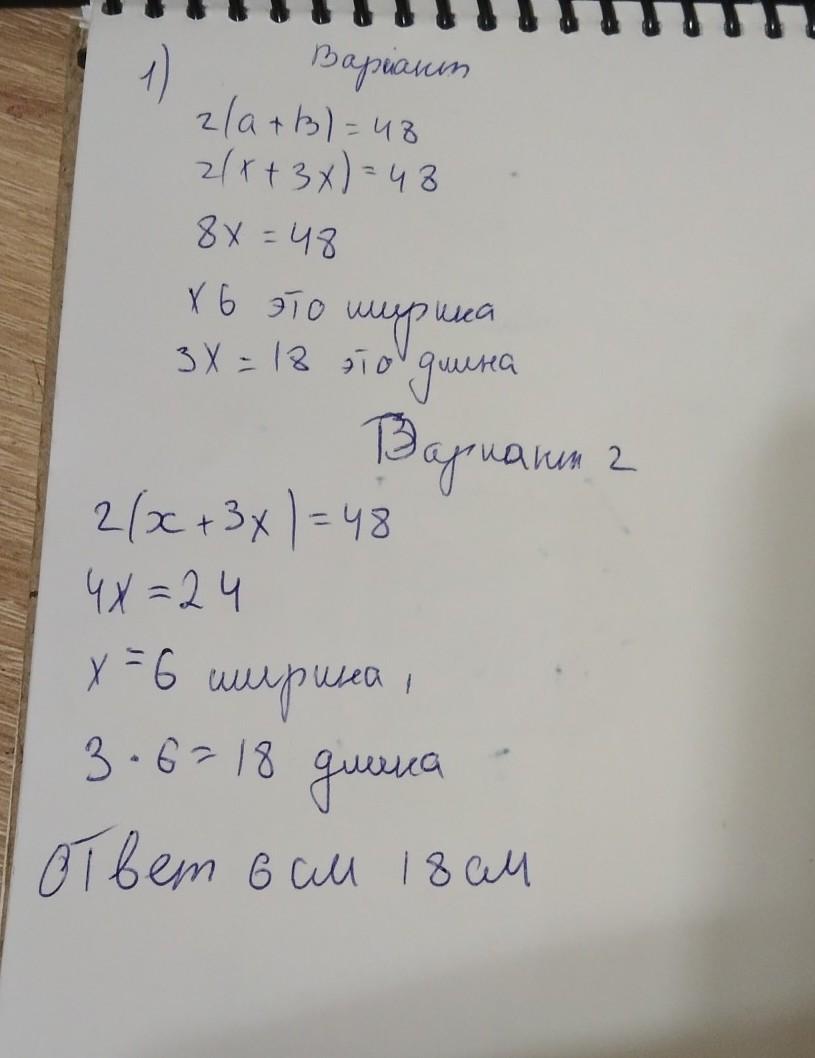 1) Вариант
2(a + в) = 48
2(x + 3x) = 48
8x = 48
x 6 это ширина
3x = 18 это длина
Вариант 2
2(x + 3x) = 48
4x = 24
x = 6 ширина,
3 · 6 = 18 длина
Ответ 6 см 18 см